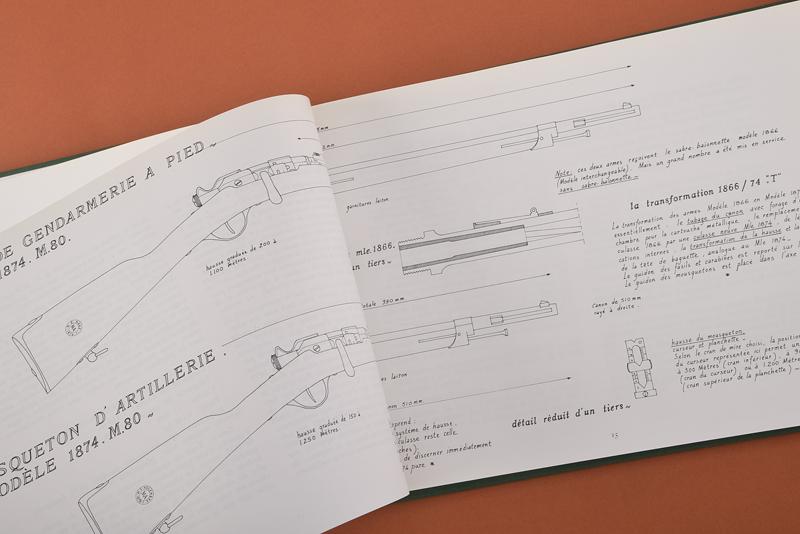 DE GENDARMERIE A PIED ~
1874. M.80.
hausse graduée de 200 à
1100 mètres
SQUETON D'ARTILLERIE.
ODÈLE 1874. M.80 ~
hausse graduée de 150 à
1250 mètres
garnitures laiton
mle.1866.
un tiers ~
totale 390 mm
laiton
510 mm.
prend:
système de hausse.
culasse reste celle
ches).
de discerner immédiatement
74 pure.
Note: ces deux armes reçoivent le sabre-baïonnette modèle 1866
(Modèle interchangeable). Mais un grand nombre a été mis en service
sans sabre-baïonnette ~
la transformation 1866/74 "T"
La transformation des armes Modèle 1866 en Modèle
essentiellement: le tubage du canon avec forage d'
chambre pour la cartouche métallique, le remplacement
culasse 1866 par une culasse neuve Mle 1874, de
cations internes. la transformation de la hausse et la
de la tête de baguette, analogue au Mle 1874.
Le guidon des fusils et carabines est reporté sur
Le guidon des mousquetons est placé dans l'axe
Canon de 510 mm
rayé à droite.
hausse du mousqueton
curseur et planchette ~
Selon le cran de mire choisi, la position
du curseur représentée ici permet un
à 300 Mètres (cran inférieur), à
(cran du curseur) ou à 1.200 Mètres
(cran supérieur de la planchette) ~
détail réduit d'un tiers ~
15